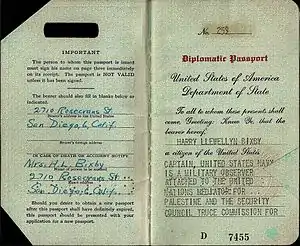 IMPORTANT
The person to whom this passport is issued
must sign his name on page three immediately
on its receipt. The passport is NOT VALID
unless it has been signed.
The bearer should also fill in blanks below as
indicated.
2710 Rosecrans St.
Bearer's address in the United States
San Diego 6, Calif.
Bearer's foreign address
IN CASE OF DEATH OR ACCIDENT NOTIFY
Mrs. H. L. Bixby
Name of person to be notified
2710 Rosecrans St.
San Diego 6, Calif.
Should you desire to obtain a new passport
after this passport shall have definitely expired,
this passport should be presented with your
application for a new passport.
No. 293
Diplomatic Passport
United States of America
Department of State
To all to whom these presents shall
come, Greeting: Know Ye, that the
bearer hereof,
HARRY LLEWELLYN BIXBY
a citizen of the United States
CAPTAIN, UNITED STATES NAVY
IS A MILITARY OBSERVER
ATTACHED TO THE UNITED
NATIONS MEDIATOR FOR
PALESTINE AND THE SECURITY
COUNCIL TRUCE COMMISSION FOR
D 7455